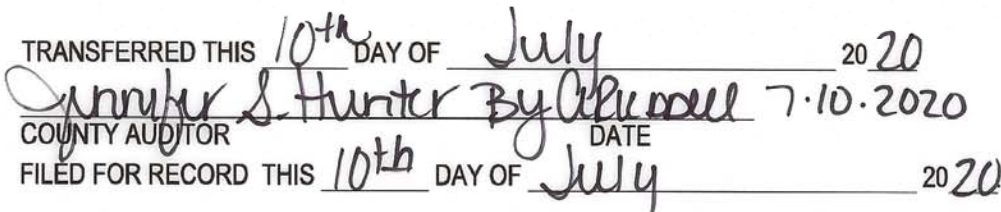 TRANSFERRED THIS 10th DAY OF July 20 20
Jennifer S. Hunter By 7.10.2020
COUNTY AUDITOR DATE
FILED FOR RECORD THIS 10th DAY OF July 20 20